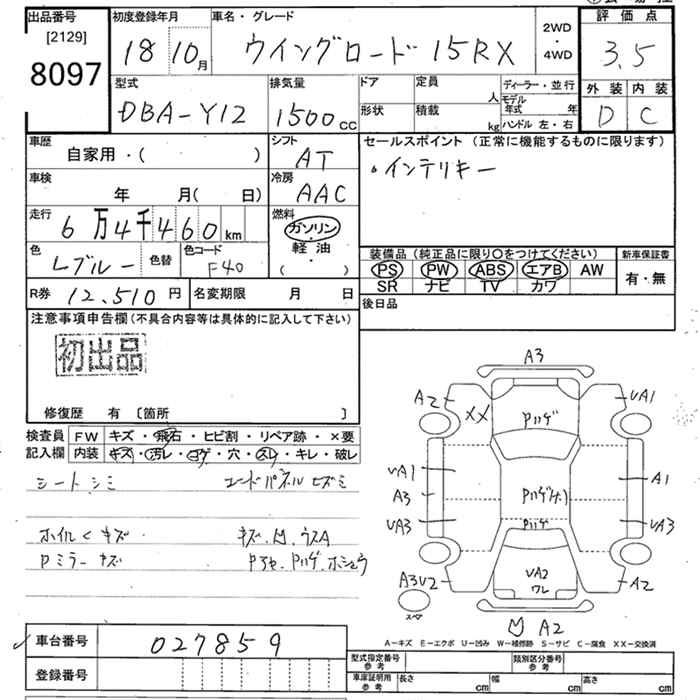 出品番号
[2129]
8097
初度登録年月
18 10月
車名・グレード
ウイングロード 15RX
2WD
・
4WD
評価点
3.5
外装 内装
D C
型式
DBA-Y12
排気量
1500cc
ドア
形状
定員
人
積載
kg
ディーラー・並行
モデル
年式 年
ハンドル 左・右
車歴
自家用・( )
シフト
AT
車検
年 月( 日)
冷房
AAC
走行
6万4千460km
燃料
ガソリン
・
軽油
( )
色
Lブルー
色替
色コード
F40
R券 12,510円
名変期限 月 日
セールスポイント(正常に機能するものに限ります)
・インテリキー
装備品(純正品に限り〇をつけてください)
PS PW ABS エアB AW
SR ナビ TV カワ
新車保証書
有・無
後日品
注意事項申告欄(不具合内容等は具体的に記入して下さい)
初出品
修復歴 有 〔箇所 〕
検査員
記入欄
FW キズ・飛石・ヒビ割・リペア跡・×要
内装 キズ・汚レ・コゲ・穴・スレ・キレ・破レ
シートシミ
コードパネルヒズミ
ホイルくキズ
キズ.凹.ウスA
Pミラーキズ
Pアセ.Pハゲ.ホシュウ
A3
A2
XX
Pハゲ
UA1
UA1
A3
UA3
Pハゲ(ナ)
Pハゲ
A1
UA3
A3U2
スペア
UA2
ワレ
A2
A2
A-キズ E-エクボ U-凹み W-補修跡 S-サビ C-腐食 XX-交換済
車台番号 027859
登録番号
型式指定番号
参考
類別区分番号
参考
車庫証明用
参考
長さ cm
幅 cm
高さ cm